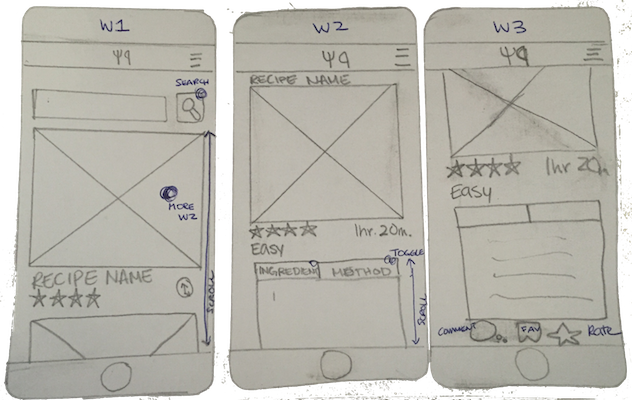 W1
SEARCH
MORE
W2
SCROLL
RECIPE NAME
W2
RECIPE NAME
1hr.20m.
Easy
TOGGLE
INGREDIENT
METHOD
SCROLL
W3
1hr 20m
Easy
COMMENT
FAV
RATE